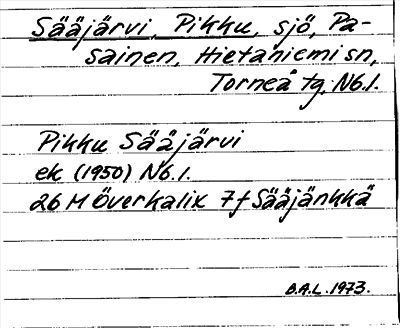 Sääjärvi, Pikku, sjö, Pa-
sainen, Hietaniemi sn,
Torneå tg, Nb.l.
Pikku Sääjärvi
ek (1950) Nb.l.
26 M Överkalix 7f Sääjänkkä
B.A.L. 1973.